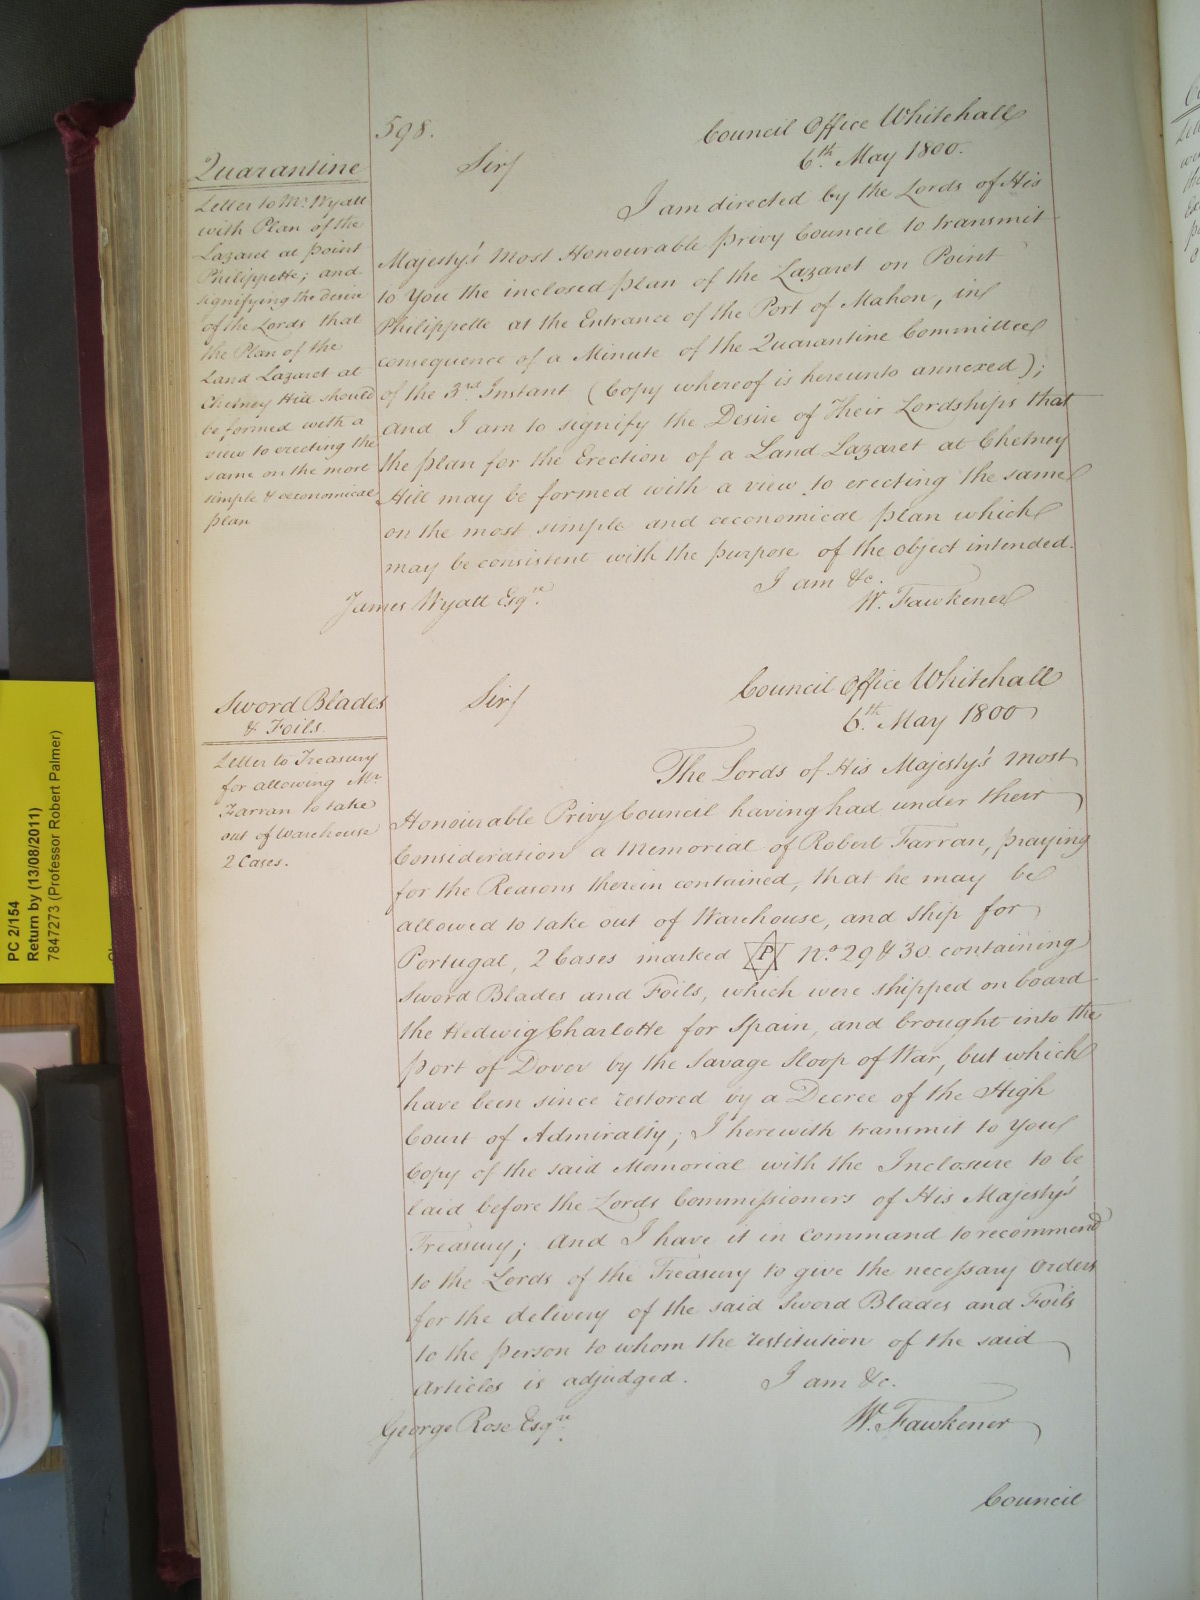 598.
Council Office Whitehall
6th May 1800.
Sir/
Quarantine
Letter to Mr. Wyatt
with Plan of the
Lazaret at point
Philippette; and
signifying the desire
of the Lords that
the Plan of the
Land Lazaret at
Chetney Hill should
be formed with a
view to erecting the
same on the most
simple & œconomical
plan
I am directed by the Lords of His
Majesty's Most Honourable Privy Council to transmit
to You the inclosed plan of the Lazaret on Point
Philippette at the Entrance of the Port of Mahon, in
consequence of a Minute of the Quarantine Committee
of the 3rd. Instant (Copy whereof is hereunto annexed);
and I am to signify the Desire of Their Lordships that
the plan for the Erection of a Land Lazaret at Chetney
Hill may be formed with a view to erecting the same
on the most simple and œconomical plan which
may be consistent with the purpose of the object intended.
I am &c.
W. Fawkener
James Wyatt Esqre.
Sword Blades
& Foils.
Letter to Treasury
for allowing Mr.
Farran to take
out of Warehouse
2 Cases.
Sir/
Council Office Whitehall
6th. May 1800
The Lords of His Majesty's most
Honourable Privy Council having had under their
Consideration a Memorial of Robert Farran, praying
for the Reasons therein contained, that he may be
allowed to take out of Warehouse, and ship for
Portugal, 2 Cases marked P No. 29 & 30. containing
Sword Blades and Foils, which were shipped on board
the Hedwig Charlotte for Spain, and brought into the
port of Dover by the Savage Sloop of War, but which
have been since restored by a Decree of the High
Court of Admiralty; I herewith transmit to You
Copy of the said Memorial with the Inclosure to be
laid before the Lords Commissioners of His Majesty's
Treasury; and I have it in Command to recommend
to the Lords of the Treasury to give the necessary Orders
for the delivery of the said Sword Blades and Foils
to the person to whom the restitution of the said
Articles is adjudged. I am &c.
W. Fawkener
George Rose Esqre.
Council
PC 2/154
Return by (13/08/2011)
7847273 (Professor Robert Palmer)